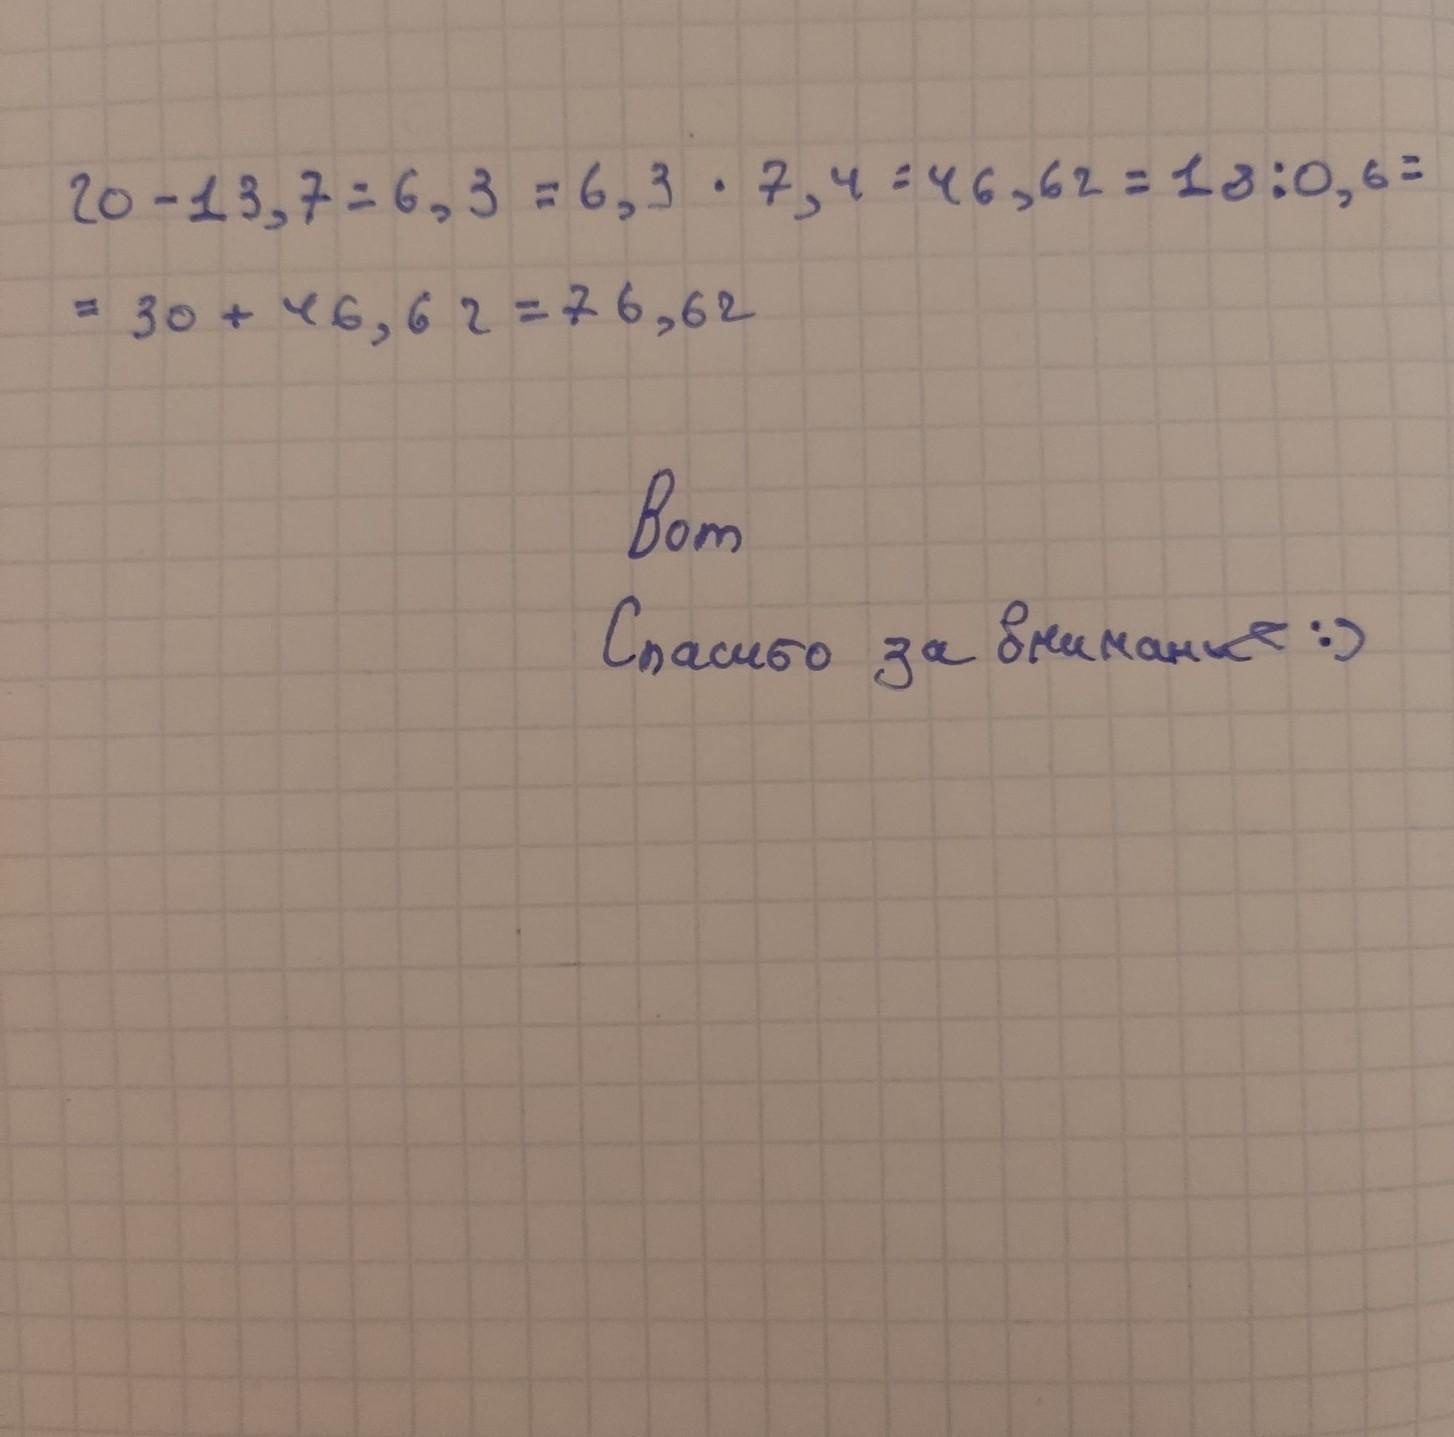 20 - 13,7 = 6,3 = 6,3 · 7,4 = 46,62 = 18 : 0,6 =
= 30 + 46,62 = 76,62
Вот
Спасибо за внимание :)